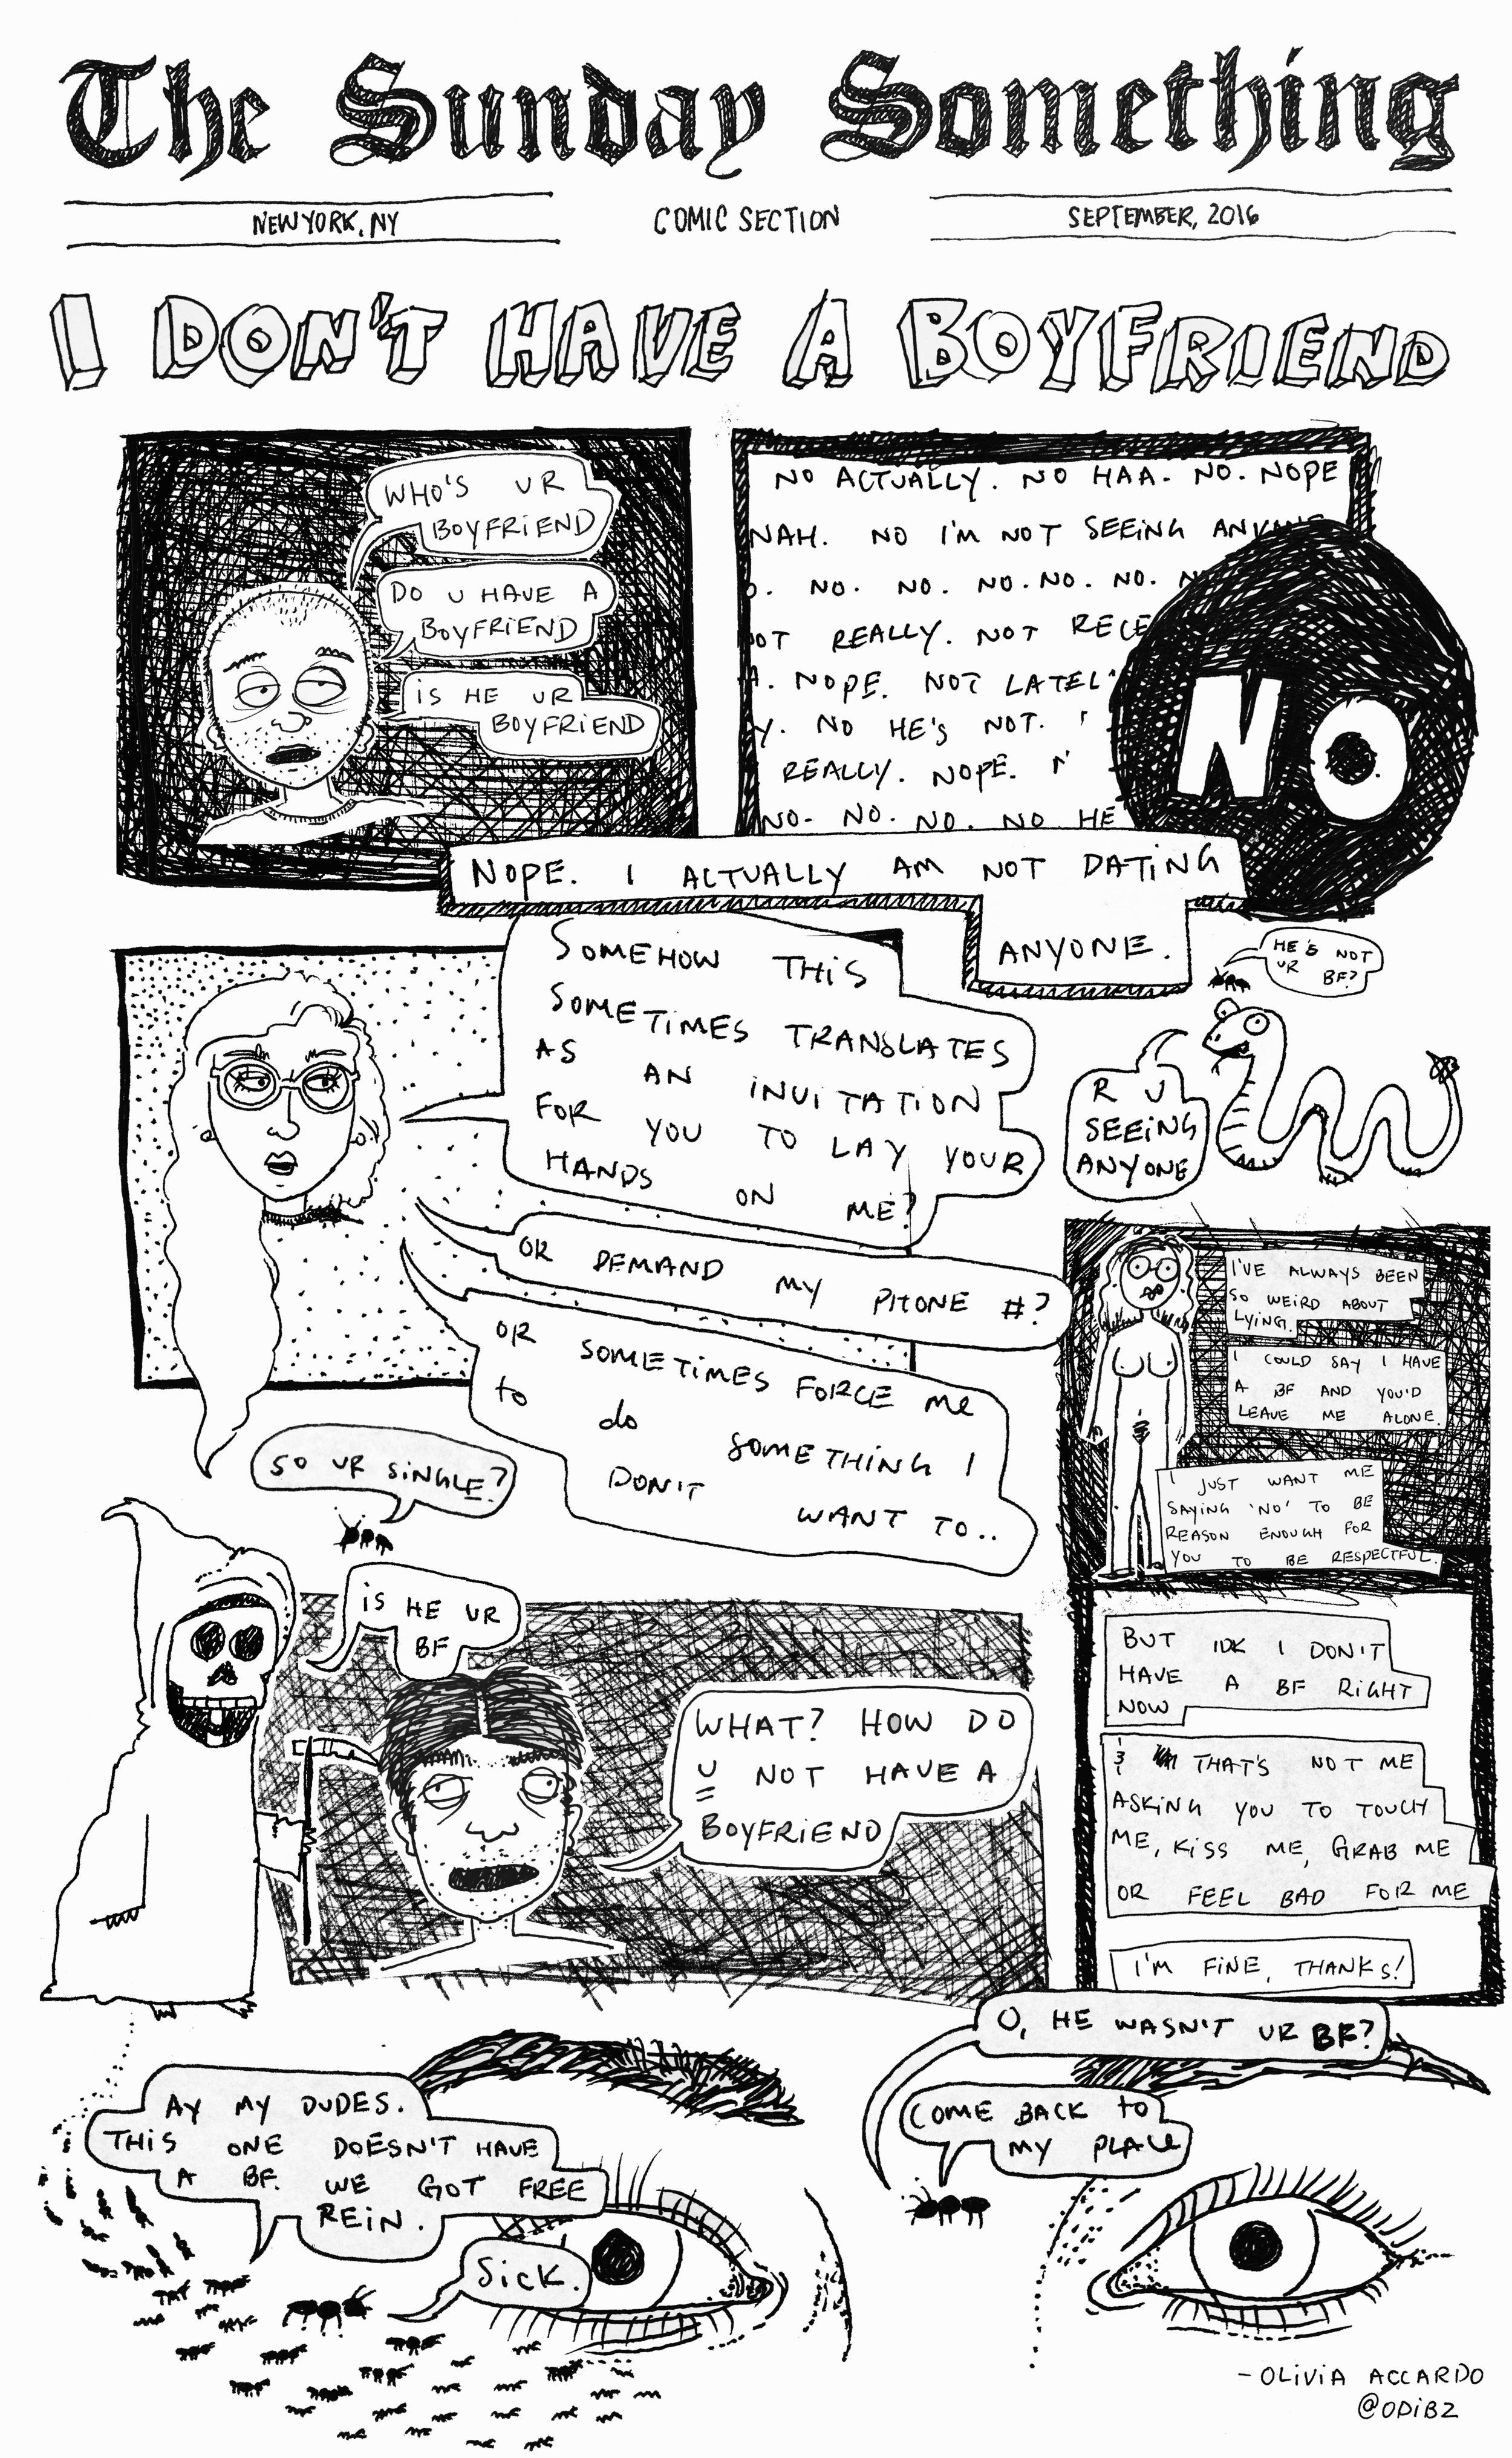 The Sunday Something
NEW YORK, NY
COMIC SECTION
SEPTEMBER, 2016
I DON'T HAVE A BOYFRIEND
WHO'S UR
BOYFRIEND
DO U HAVE A
BOYFRIEND
IS HE UR
BOYFRIEND
NO ACTUALLY. NO HAA. NO. NOPE
NAH. NO I'M NOT SEEING
NO. NO. NO. NO. NO.
REALLY. NOT
NOPE. NOT
NO HE'S NOT.
REALLY. NOPE.
NO. NO. NO. NO HE
NO
NOPE. I ACTUALLY AM NOT DATING
ANYONE.
HE'S NOT
UR BF?
R U
SEEING
ANYONE
SOMEHOW THIS
SOMETIMES TRANSLATES
AS AN INVITATION
FOR YOU TO LAY YOUR
HANDS ON ME?
OR DEMAND MY PHONE #?
OR SOMETIMES FORCE ME
to do SOMETHING I
DON'T WANT TO..
I'VE ALWAYS BEEN
SO WEIRD ABOUT
LYING.
I COULD SAY I HAVE
A BF AND YOU'D
LEAVE ME ALONE.
I JUST WANT ME
SAYING 'NO' TO BE
REASON ENOUGH FOR
YOU TO BE RESPECTFUL.
SO UR SINGLE?
IS HE UR
BF
WHAT? HOW DO
U NOT HAVE A
BOYFRIEND
BUT IDK I DON'T
HAVE A BF RIGHT
NOW
& THAT'S NOT ME
ASKING YOU TO TOUCH
ME, KISS ME, GRAB ME
OR FEEL BAD FOR ME
I'M FINE, THANKS!
O, HE WASN'T UR BF?
COME BACK TO
MY PLACE
AY MY DUDES.
THIS ONE DOESN'T HAVE
A BF. WE GOT FREE
REIN.
SICK.
- OLIVIA ACCARDO
@ODIBZ